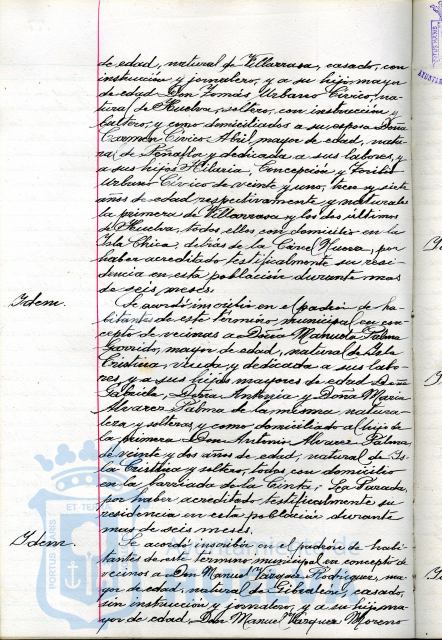 de edad, natural de Villarrasa, casado, con
instrucción y jornalero, y a su hijo, mayor
de edad Don Tomás Urbano Cívico, na-
tural de Huelva, soltero, con instrucción, y
soltero, y como domiciliados a su esposa Doña
Carmen Cívico Abril, mayor de edad, natu-
ral de Peñaflor y dedicada a sus labores, y
a sus hijos Hilaria, Concepción y Toribio
Urbano Cívico de veinte y uno, trece y siete
años de edad respectivamente y naturales
la primera de Villarrasa y los dos últimos
de Huelva, todos ellos con domicilio en la
Isla Chica, detrás de la Carcel Nueva, por
haber acreditado testificalmente su resi-
dencia en esta población durante mas
de seis meses.
Idem. Se acordó inscribir en el padrón de ha-
bitantes de este término municipal en con-
cepto de vecinas a Doña Manuela Palma
Garrido, mayor de edad, natural de Isla
Cristina, viuda y dedicada a sus labo-
res, y a sus hijas mayores de edad Doña
Gabriela, Doña Antonia y Doña María
Alvarez Palma de la misma natura-
leza y solteras, y como domiciliado al hijo de
la primera Don Antonio Alvarez Palma,
de veinte y dos años de edad, natural de Is-
la Cristina y soltero, todos con domicilio
en la barriada de la Cinta, La Parada,
por haber acreditado testificalmente su
residencia en esta población durante
mas de seis meses.
Idem. Se acordó inscribir en el padrón de habi-
tantes de este término municipal en concepto de
vecinos a Don Manuel Vázquez Rodríguez, ma-
yor de edad, natural de Gibraleón, casado,
sin instrucción y jornalero, y a su hijo ma-
yor de edad, Don Manuel Vázquez Moreno
PORTUS MARIS
ET TE
Ayuntamiento de